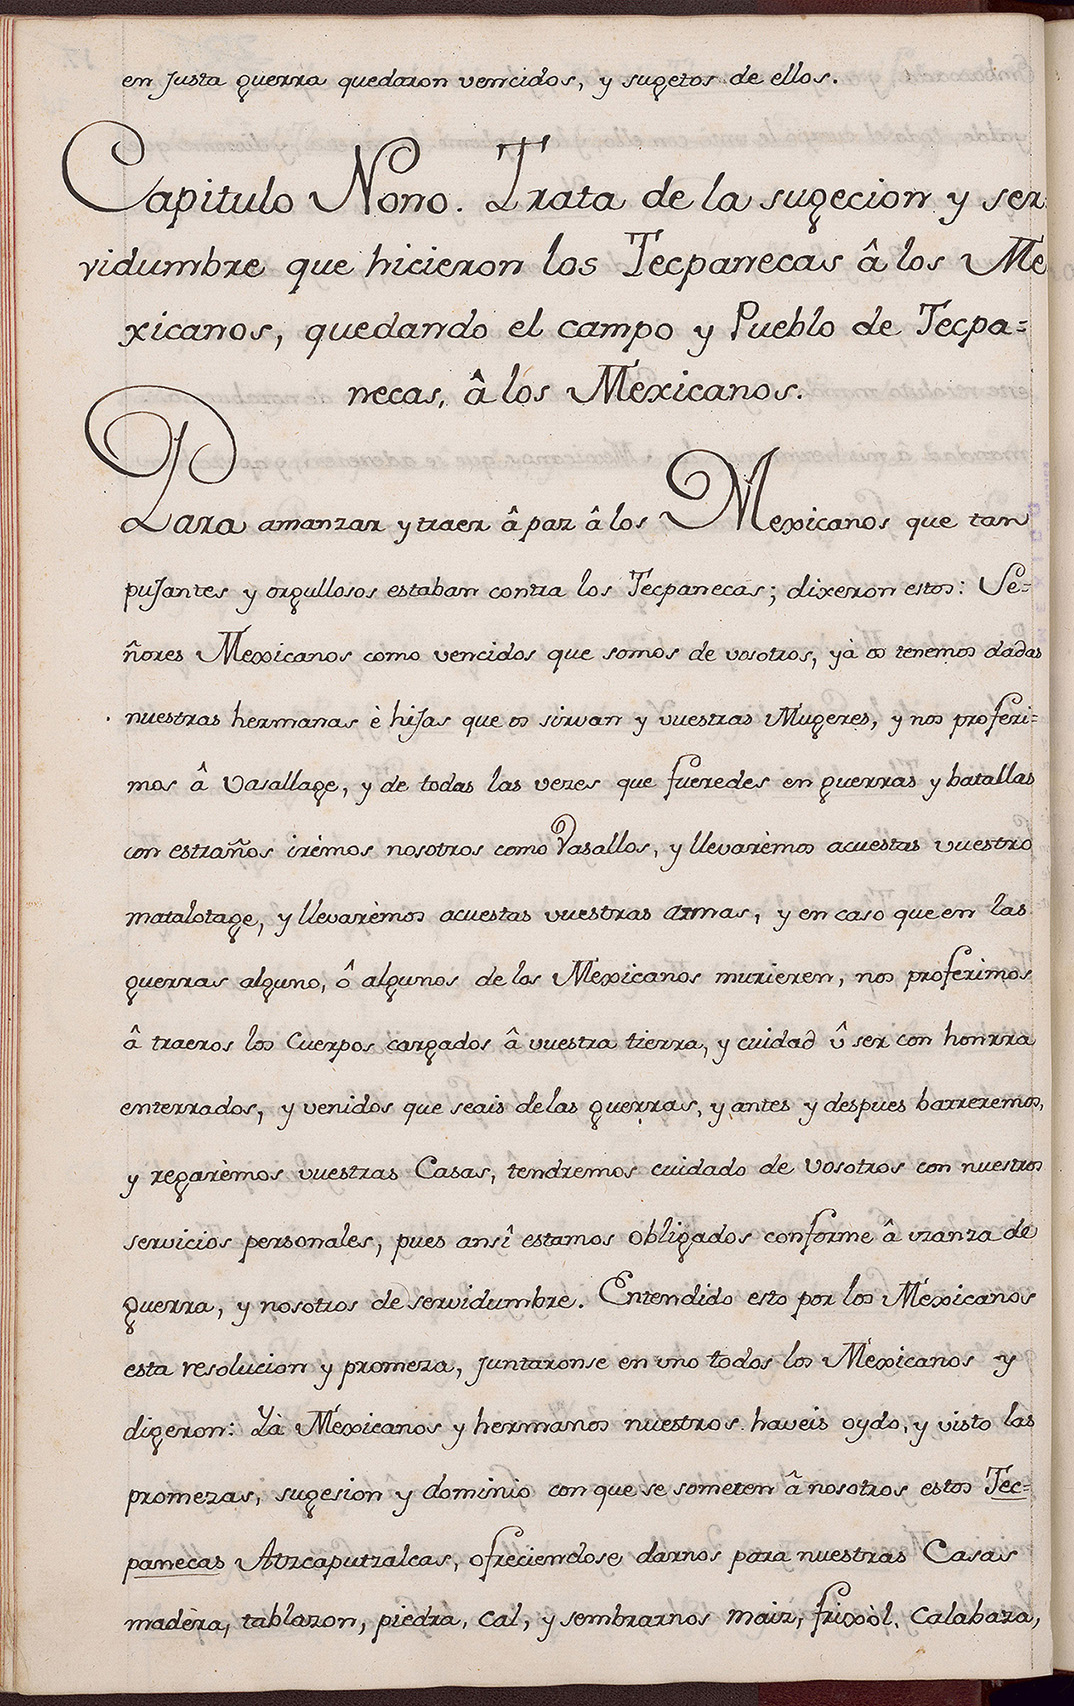 en justa guerra quedaron vencidos, y sugetos de ellos.
Capitulo Nono. Trata de la sugecion y ser
vidumbre que hicieron los Tecpanecas â los Me
xicanos, quedando el campo y Pueblo de Tecpa=
necas, â los Mexicanos.
Para amanzar y traer â paz â los Mexicanos que tan
pujantes y orgullosos estaban contra los Tecpanecas; dixeron estos: Se=
ñores Mexicanos como vencidos que somos de vosotros, yà os tenemos dadas
nuestras hermanas è hijas que os sirvan y vuestras Mugeres, y nos proferi=
mos â Vasallage, y de todas las vezes que fueredes en guerras y batallas
con estraños irèmos nosotros como Vasallos, y llevarèmos acuestas vuestro
matalotage, y llevarèmos acuestas vuestras armas, y en caso que en las
guerras alguno, ô algunos de los Mexicanos murieren, nos proferimos
â traeros los Cuerpos cargados â vuestra tierra, y cuidad û ser con honrra
enterrados, y venidos que seais de las guerras, y antes y despues barreremos,
y regarèmos vuestras Casas, tendremos cuidado de vosotros con nuestros
servicios personales, pues ansî estamos obligados conforme â vzanza de
guerra, y nosotros de servidumbre. Entendido esto por los Mexicanos
esta resolucion y promeza, juntaronse en vno todos los Mexicanos y
digeron: Yà Mexicanos y hermanos nuestros haveis oydo, y visto las
promezas, sugesion y dominio con que se someten â nosotros estos Tec=
panecas Atzcaputzalcas, ofreciendose darnos para nuestras Casas
madèra, tablazon, piedra, cal, y sembrarnos maiz, frixòl, calabaza,